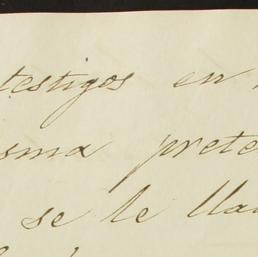 testigos en
sma prete
se le lla